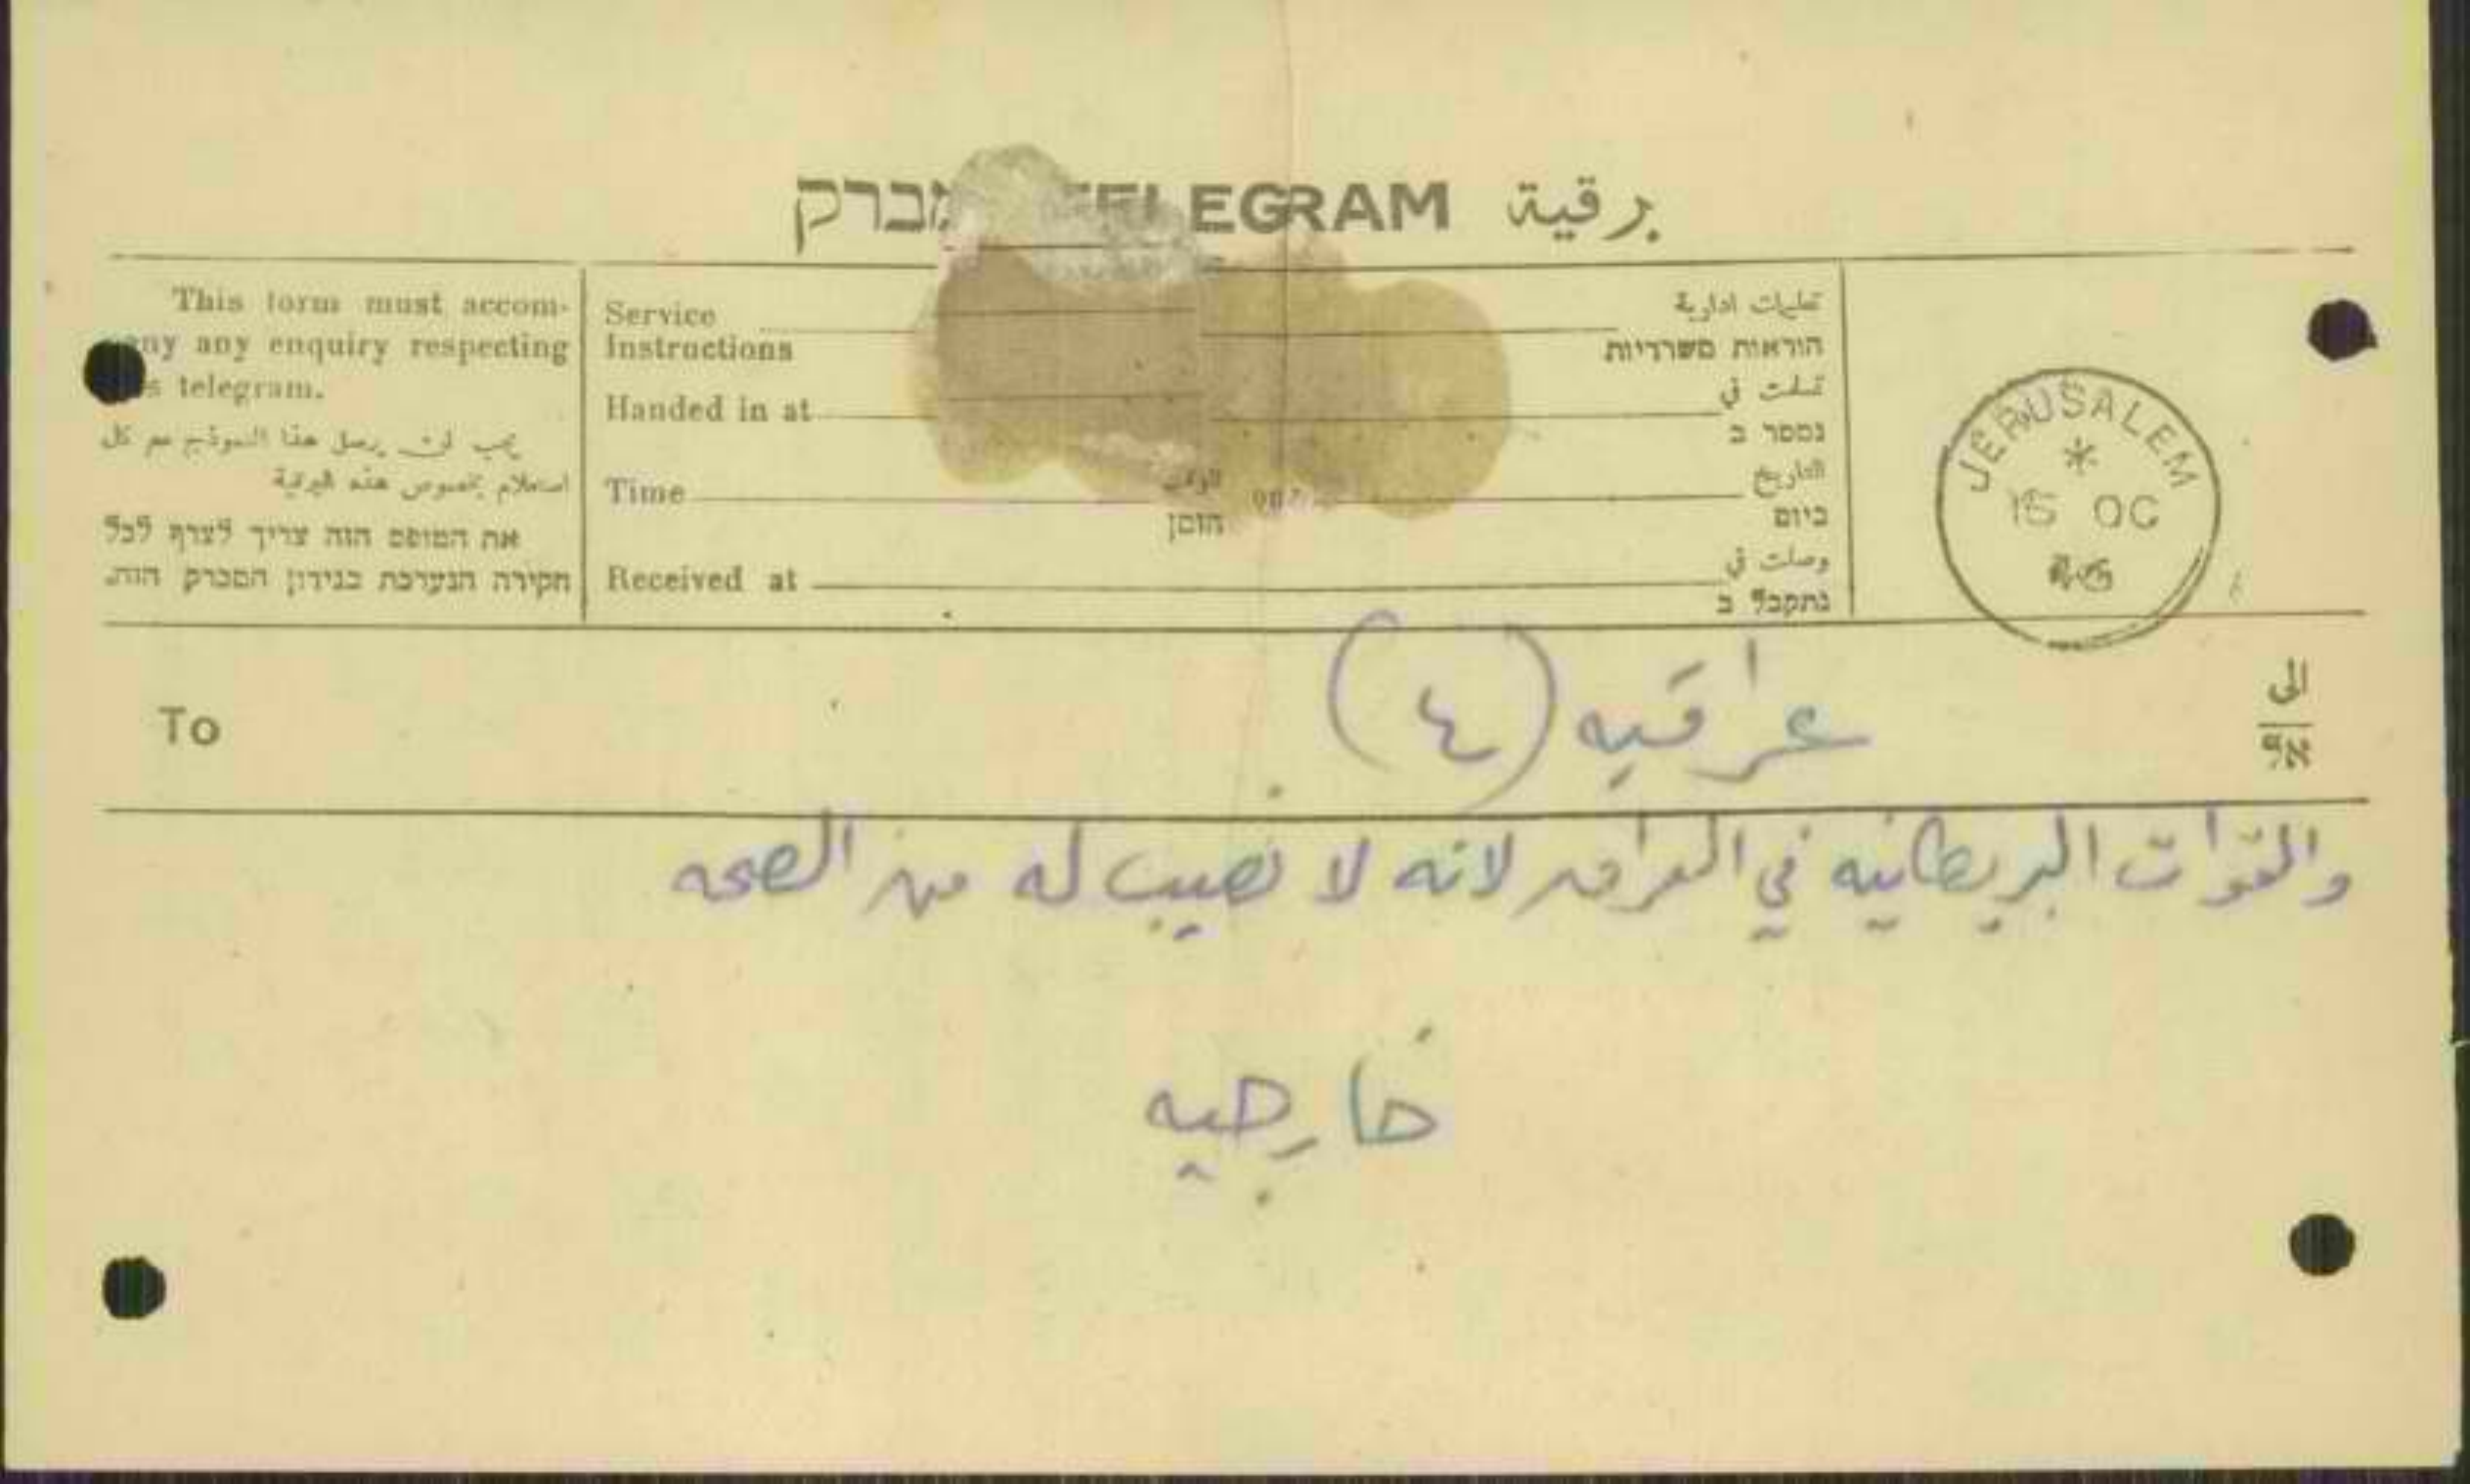 מברק TELEGRAM برقية
This form must accom-
any any enquiry respecting
s telegram.
يجب ان يرسل هذا النموذج مع كل
استعلام بخصوص هذه البرقية
את הטופס הזה צריך לצרף לכל
חקירה הנערכת בנידון המברק הזה.
Service
Instructions
تعليمات ادارية
הוראות משרדיות
Handed in at
تسلمت في
נמסר ב
Time
الوقت
הזמן
التاريخ
ביום
Received at
وصلت في
נתקבל ב
JERUSALEM
*
OC
To
عراقيه (٤)
الى
אל
والقوات البريطانيه في العراق لانه لا نصيب له من الصحه
خارجيه